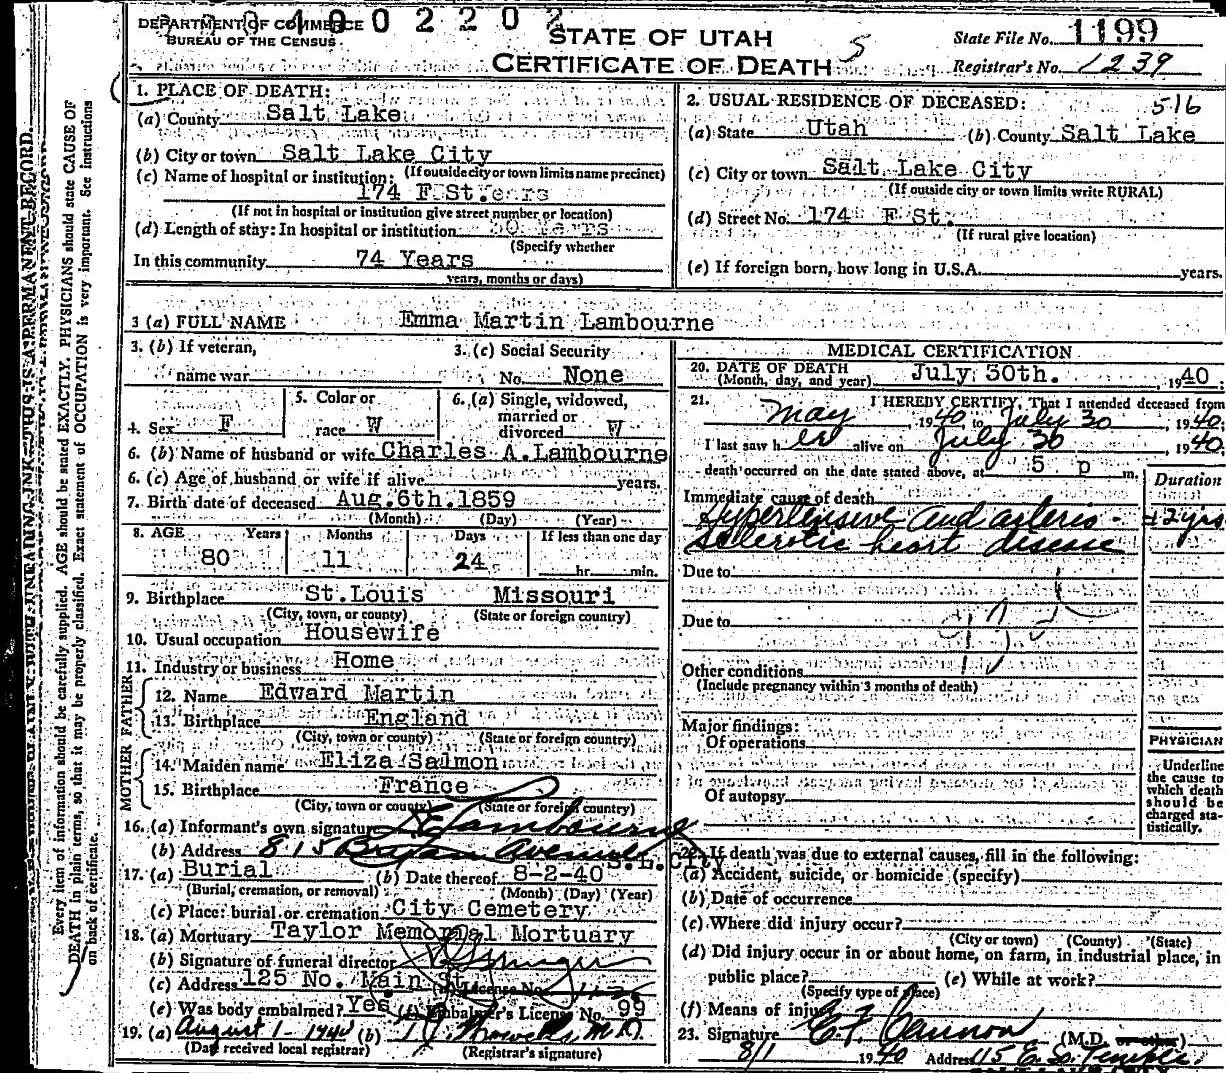 DEPARTMENT OF COMMERCE
BUREAU OF THE CENSUS
4002202
STATE OF UTAH
CERTIFICATE OF DEATH
5
State File No. 1199
Registrar's No. 1239
1. PLACE OF DEATH:
(a) County Salt Lake
(b) City or town Salt Lake City
(If outside city or town limits name precinct)
(c) Name of hospital or institution:
174 F St.
(If not in hospital or institution give street number or location)
(d) Length of stay: In hospital or institution
(Specify whether
In this community 74 Years
years, months or days)
2. USUAL RESIDENCE OF DECEASED: 516
(a) State Utah (b) County Salt Lake
(c) City or town Salt Lake City
(If outside city or town limits write RURAL)
(d) Street No. 174 F St.
(If rural give location)
(e) If foreign born, how long in U.S.A. years.
3 (a) FULL NAME Emma Martin Lambourne
3. (b) If veteran,
name war
3. (c) Social Security
No. None
4. Sex F
5. Color or
race W
6. (a) Single, widowed,
married or
divorced W
6. (b) Name of husband or wife Charles A. Lambourne
6. (c) Age of husband or wife if alive years.
7. Birth date of deceased Aug. 6th. 1859
(Month) (Day) (Year)
8. AGE Years Months Days If less than one day
80 11 24 hr. min.
9. Birthplace St. Louis Missouri
(City, town, or county) (State or foreign country)
10. Usual occupation Housewife
11. Industry or business Home
FATHER
12. Name Edward Martin
13. Birthplace England
(City, town or county) (State or foreign country)
MOTHER
14. Maiden name Eliza Salmon
15. Birthplace France
(City, town or county) (State or foreign country)
16. (a) Informant's own signature Lambourne
(b) Address 815 Bryan Avenue S.L. City
17. (a) Burial (b) Date thereof 8-2-40
(Burial, cremation, or removal) (Month) (Day) (Year)
(c) Place: burial or cremation City Cemetery
18. (a) Mortuary Taylor Memorial Mortuary
(b) Signature of funeral director
(c) Address 125 No. Main St. License No.
(e) Was body embalmed? Yes Embalmer's License No. 99
19. (a) August 1-1940 (b) M.D.
(Date received local registrar) (Registrar's signature)
MEDICAL CERTIFICATION
20. DATE OF DEATH
(Month, day, and year) July 30th. , 1940;
21. I HEREBY CERTIFY, That I attended deceased from
May , 1940 to July 30 , 1940;
I last saw her alive on July 30 , 1940;
death occurred on the date stated above, at 5 p m.
Duration
Immediate cause of death
Hypertensive and arterio- ± 2 yrs
sclerotic heart disease
Due to
Due to
Other conditions
(Include pregnancy within 3 months of death)
Major findings:
Of operations
Of autopsy
PHYSICIAN
Underline
the cause to
which death
should be
charged sta-
tistically.
22. If death was due to external causes, fill in the following:
(a) Accident, suicide, or homicide (specify)
(b) Date of occurrence
(c) Where did injury occur?
(City or town) (County) (State)
(d) Did injury occur in or about home, on farm, in industrial place, in
public place? (e) While at work?
(Specify type of place)
(f) Means of injury
23. Signature E. F. Cannon (M.D. or other)
8/1 1940 Address 115 E. So. Temple
Every item of information should be carefully supplied. AGE should be stated EXACTLY. PHYSICIANS should state CAUSE OF
DEATH in plain terms, so that it may be properly classified. Exact statement of OCCUPATION is very important. See instructions
on back of certificate.